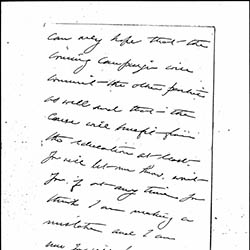 can only hope that the
coming campaign will
commit the other parties
as well and that the
cause will benefit from
the education at least.
You will let me know, wont
you, if at any time you
think I am making a
mistake and I am